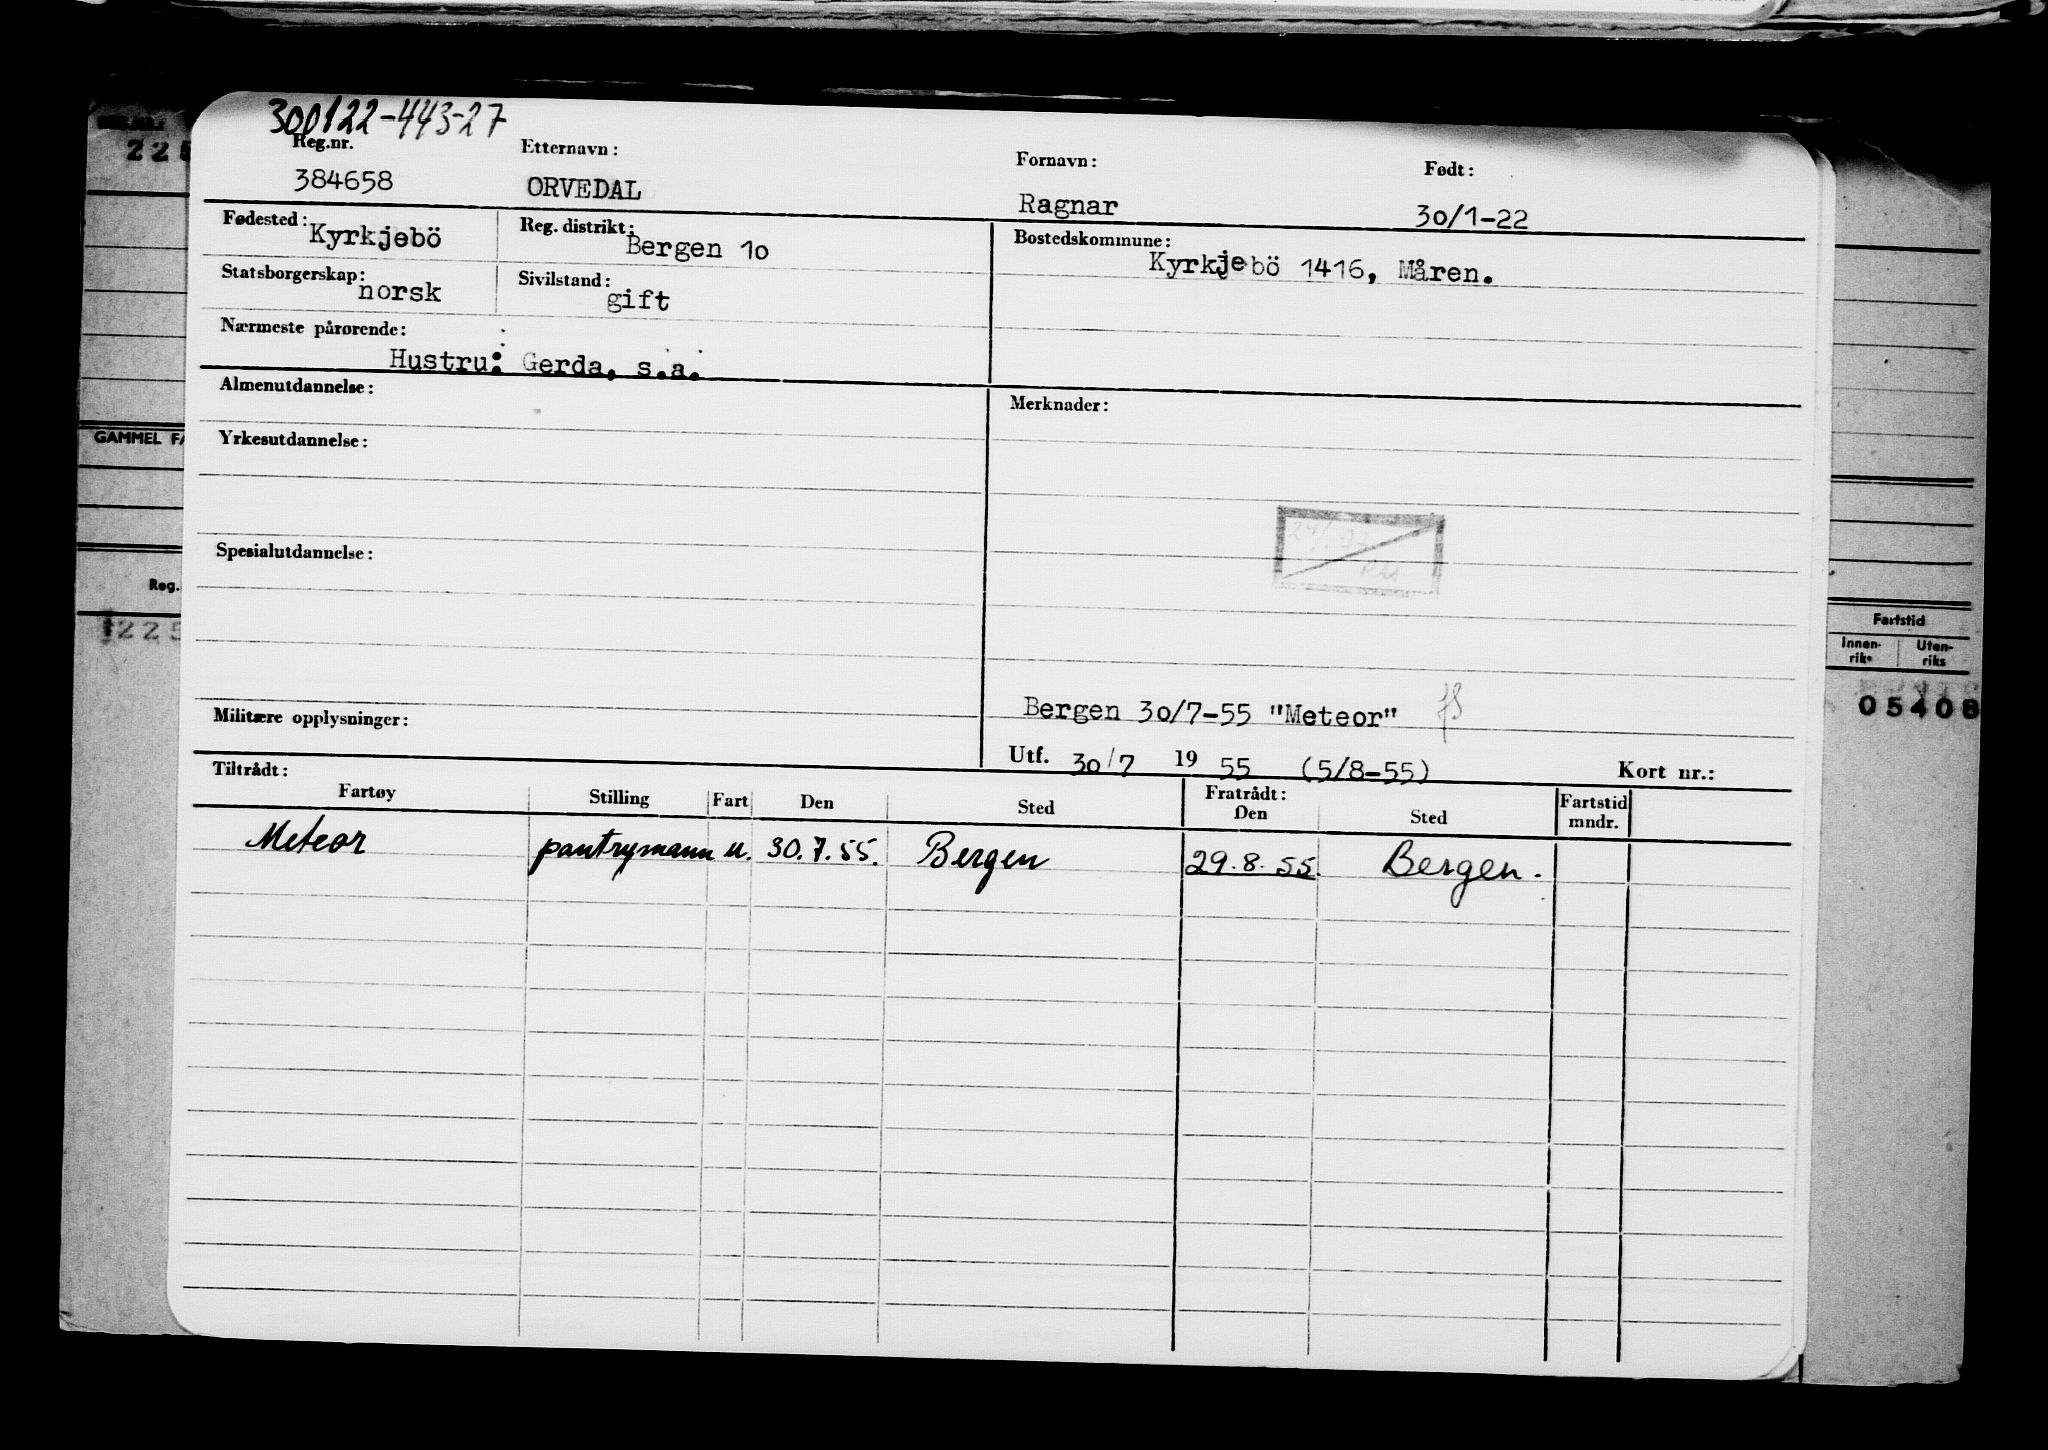 300122-443-27
Reg.nr. Etternavn: Fornavn: Født:
384658 ORVEDAL Ragnar 30/1-22
Fødested: Kyrkjebö Reg. distrikt: Bergen 10 Bostedskommune: Kyrkjebö 1416, Måren.
Statsborgerskap: norsk Sivilstand: gift
Nærmeste pårørende:
Hustru: Gerda, s.a.
Almenutdannelse: Merknader:
Yrkesutdannelse:
Spesialutdannelse:
Bergen 30/7-55 "Meteor"
Militære opplysninger:
Utf. 30/7 19 55 (5/8-55) Kort nr.:
Tiltrådt: Fratrådt:
Fartøy Stilling Fart Den Sted Den Sted Fartstid mndr.
Meteor pantrymann u. 30.7.55. Bergen 29.8.55. Bergen.
GAMMEL
Reg.
225
Fartstid
Innen-
riks
Uten-
riks
05408